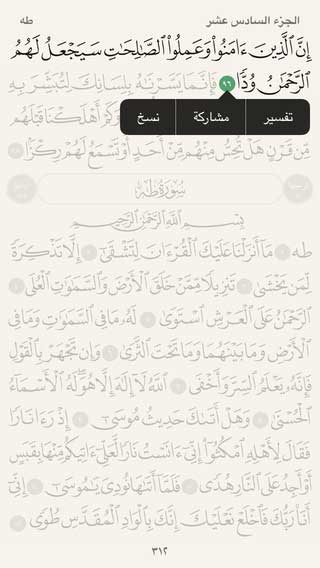 الجزء السادس عشر
طه
إِنَّ ٱلَّذِينَ ءَامَنُوا۟ وَعَمِلُوا۟ ٱلصَّٰلِحَٰتِ سَيَجْعَلُ لَهُمُ
ٱلرَّحْمَٰنُ وُدًّا ٩٦ فَإِنَّمَا يَسَّرْنَٰهُ بِلِسَانِكَ لِتُبَشِّرَ بِهِ
وَكَمْ أَهْلَكْنَا قَبْلَهُم
تفسير
مشاركة
نسخ
مِّن قَرْنٍ هَلْ تُحِسُّ مِنْهُم مِّنْ أَحَدٍ أَوْ تَسْمَعُ لَهُمْ رِكْزًۢا
سُورَةُ طه
بِسْمِ ٱللَّهِ ٱلرَّحْمَٰنِ ٱلرَّحِيمِ
طه مَآ أَنزَلْنَا عَلَيْكَ ٱلْقُرْءَانَ لِتَشْقَىٰٓ إِلَّا تَذْكِرَةً
لِّمَن يَخْشَىٰ تَنزِيلًا مِّمَّنْ خَلَقَ ٱلْأَرْضَ وَٱلسَّمَٰوَٰتِ ٱلْعُلَى
ٱلرَّحْمَٰنُ عَلَى ٱلْعَرْشِ ٱسْتَوَىٰ لَهُۥ مَا فِى ٱلسَّمَٰوَٰتِ وَمَا فِى
ٱلْأَرْضِ وَمَا بَيْنَهُمَا وَمَا تَحْتَ ٱلثَّرَىٰ وَإِن تَجْهَرْ بِٱلْقَوْلِ
فَإِنَّهُۥ يَعْلَمُ ٱلسِّرَّ وَأَخْفَى ٱللَّهُ لَآ إِلَٰهَ إِلَّا هُوَ لَهُ ٱلْأَسْمَآءُ
ٱلْحُسْنَىٰ وَهَلْ أَتَىٰكَ حَدِيثُ مُوسَىٰٓ إِذْ رَءَا نَارًا
فَقَالَ لِأَهْلِهِ ٱمْكُثُوٓا۟ إِنِّىٓ ءَانَسْتُ نَارًا لَّعَلِّىٓ ءَاتِيكُم مِّنْهَا بِقَبَسٍ
أَوْ أَجِدُ عَلَى ٱلنَّارِ هُدًى فَلَمَّآ أَتَىٰهَا نُودِىَ يَٰمُوسَىٰٓ إِنِّىٓ
أَنَا۠ رَبُّكَ فَٱخْلَعْ نَعْلَيْكَ إِنَّكَ بِٱلْوَادِ ٱلْمُقَدَّسِ طُوًى
٣١٢